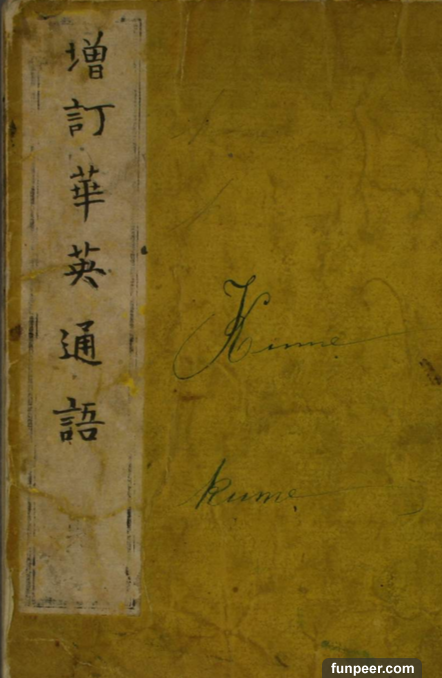 增訂華英通語
Kume
kume
funpeer.com